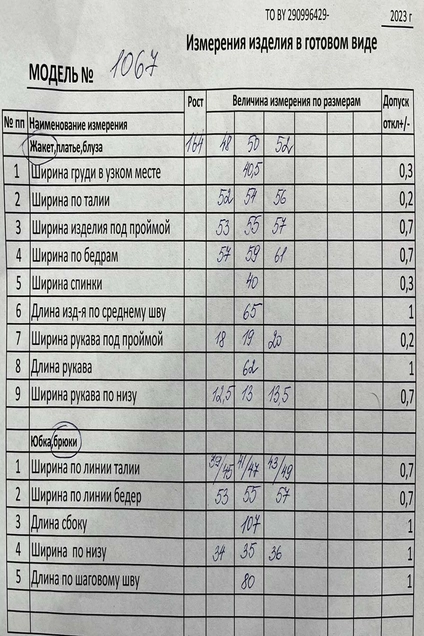 ТО BY 290996429-
2023 г
Измерения изделия в готовом виде
МОДЕЛЬ № 1067
№ пп Наименование измерения Рост Величина измерения по размерам Допуск откл+/-
Жакет,платье,блуза 164 48 50 52
1 Ширина груди в узком месте 40,5 0,3
2 Ширина по талии 52 54 56 0,2
3 Ширина изделия под проймой 53 55 57 0,7
4 Ширина по бедрам 57 59 61 0,7
5 Ширина спинки 40 0,3
6 Длина изд-я по среднему шву 65 1
7 Ширина рукава под проймой 18 19 20 0,2
8 Длина рукава 62 1
9 Ширина рукава по низу 12,5 13 13,5 0,7
Юбка,брюки
1 Ширина по линии талии 39/45 41/47 43/49 0,7
2 Ширина по линии бедер 53 55 57 0,7
3 Длина сбоку 107 1
4 Ширина по низу 34 35 36 1
5 Длина по шаговому шву 80 1